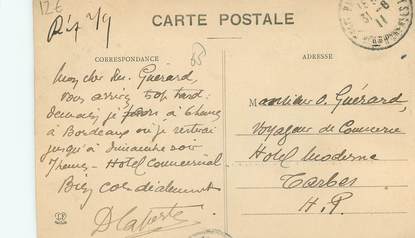 12€
Rép 2/9
CARTE POSTALE
CORRESPONDANCE
ADRESSE
31-8
11
Mon cher Mr. Guérard,
vous arrivez trop tard:
demain, je pars à 6 heures
à Bordeaux où je serai
jusqu'à dimanche soir
7 heures - Hotel Commercial
Bien cordialement
Monsieur O. Guérard,
Voyageur de Commerce
Hotel Moderne
Tarbes
H. P.